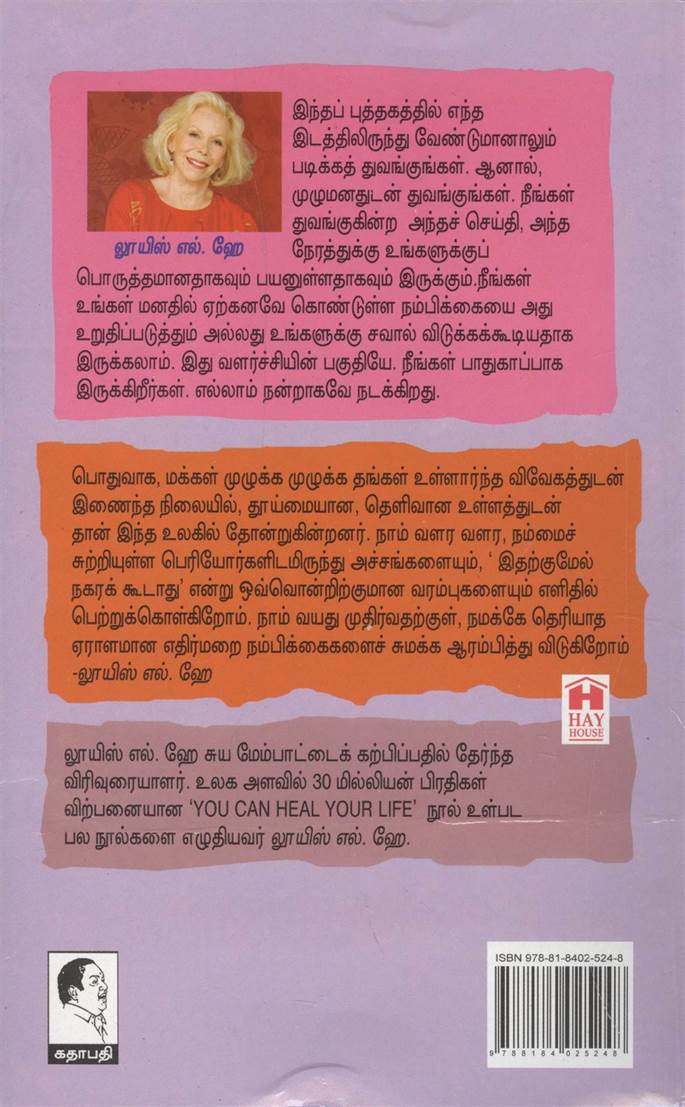 இந்தப் புத்தகத்தில் எந்த
இடத்திலிருந்து வேண்டுமானாலும்
படிக்கத் துவங்குங்கள். ஆனால்,
முழுமனதுடன் துவங்குங்கள். நீங்கள்
துவங்குகின்ற அந்தச் செய்தி, அந்த
லூயிஸ் எல். ஹே
நேரத்துக்கு உங்களுக்குப்
பொருத்தமானதாகவும் பயனுள்ளதாகவும் இருக்கும்.நீங்கள்
உங்கள் மனதில் ஏற்கனவே கொண்டுள்ள நம்பிக்கையை அது
உறுதிப்படுத்தும் அல்லது உங்களுக்கு சவால் விடுக்கக்கூடியதாக
இருக்கலாம். இது வளர்ச்சியின் பகுதியே. நீங்கள் பாதுகாப்பாக
இருக்கிறீர்கள். எல்லாம் நன்றாகவே நடக்கிறது.
பொதுவாக, மக்கள் முழுக்க முழுக்க தங்கள் உள்ளார்ந்த விவேகத்துடன்
இணைந்த நிலையில், தூய்மையான, தெளிவான உள்ளத்துடன்
தான் இந்த உலகில் தோன்றுகின்றனர். நாம் வளர வளர, நம்மைச்
சுற்றியுள்ள பெரியோர்களிடமிருந்து அச்சங்களையும், ' இதற்குமேல்
நகரக் கூடாது' என்று ஒவ்வொன்றிற்குமான வரம்புகளையும் எளிதில்
பெற்றுக்கொள்கிறோம். நாம் வயது முதிர்வதற்குள், நமக்கே தெரியாத
ஏராளமான எதிர்மறை நம்பிக்கைகளைச் சுமக்க ஆரம்பித்து விடுகிறோம்
-லூயிஸ் எல். ஹே
HAY
HOUSE
லூயிஸ் எல். ஹே சுய மேம்பாட்டைக் கற்பிப்பதில் தேர்ந்த
விரிவுரையாளர். உலக அளவில் 30 மில்லியன் பிரதிகள்
விற்பனையான 'YOU CAN HEAL YOUR LIFE' நூல் உள்பட
பல நூல்களை எழுதியவர் லூயிஸ் எல். ஹே.
கதாபதி
ISBN 978-81-8402-524-8
9 788184 025248